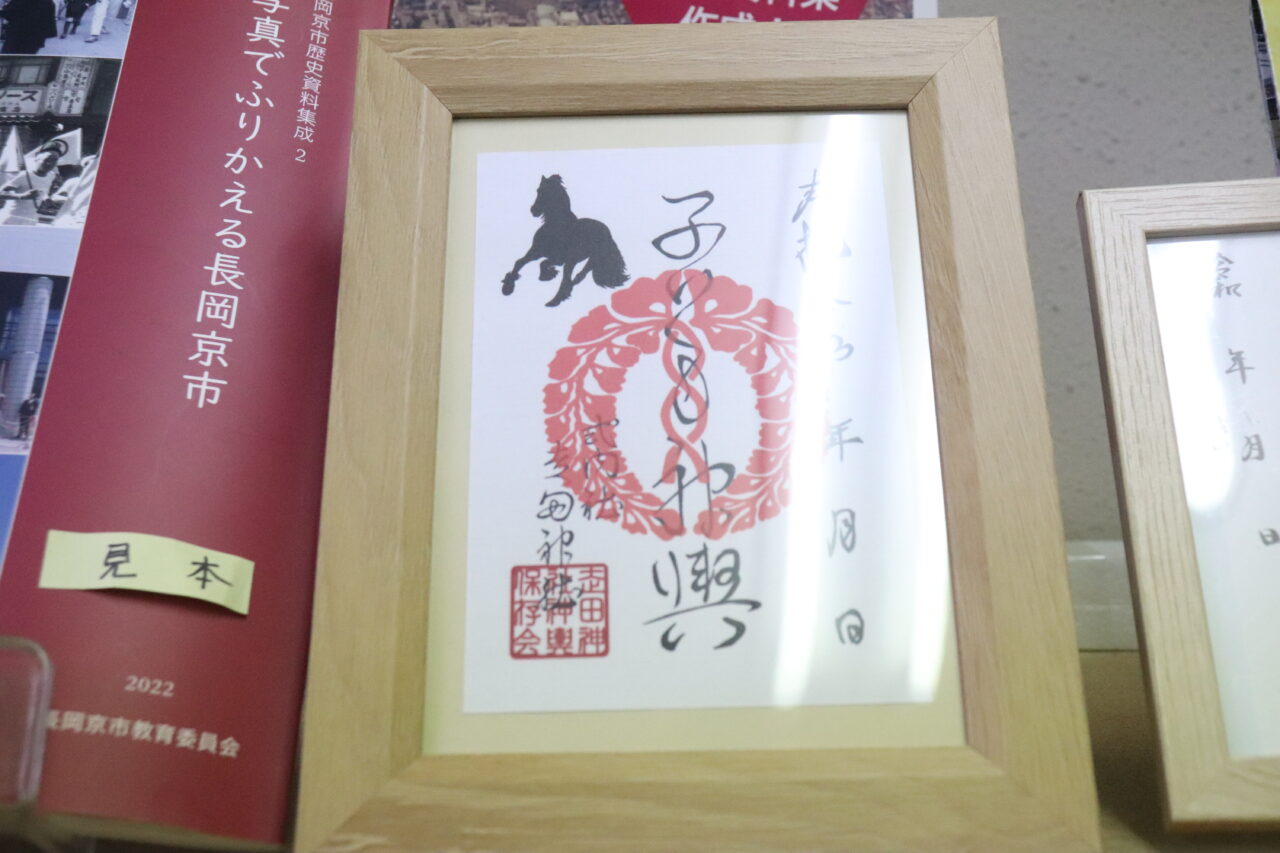 岡京市歴史資料集成 2
写真でふりかえる長岡京市
見本
2022
長岡京市教育委員会
年 月 日
子ども神輿
式内社
走田神社
走田神
社神輿
保存会
令和
年
月
日